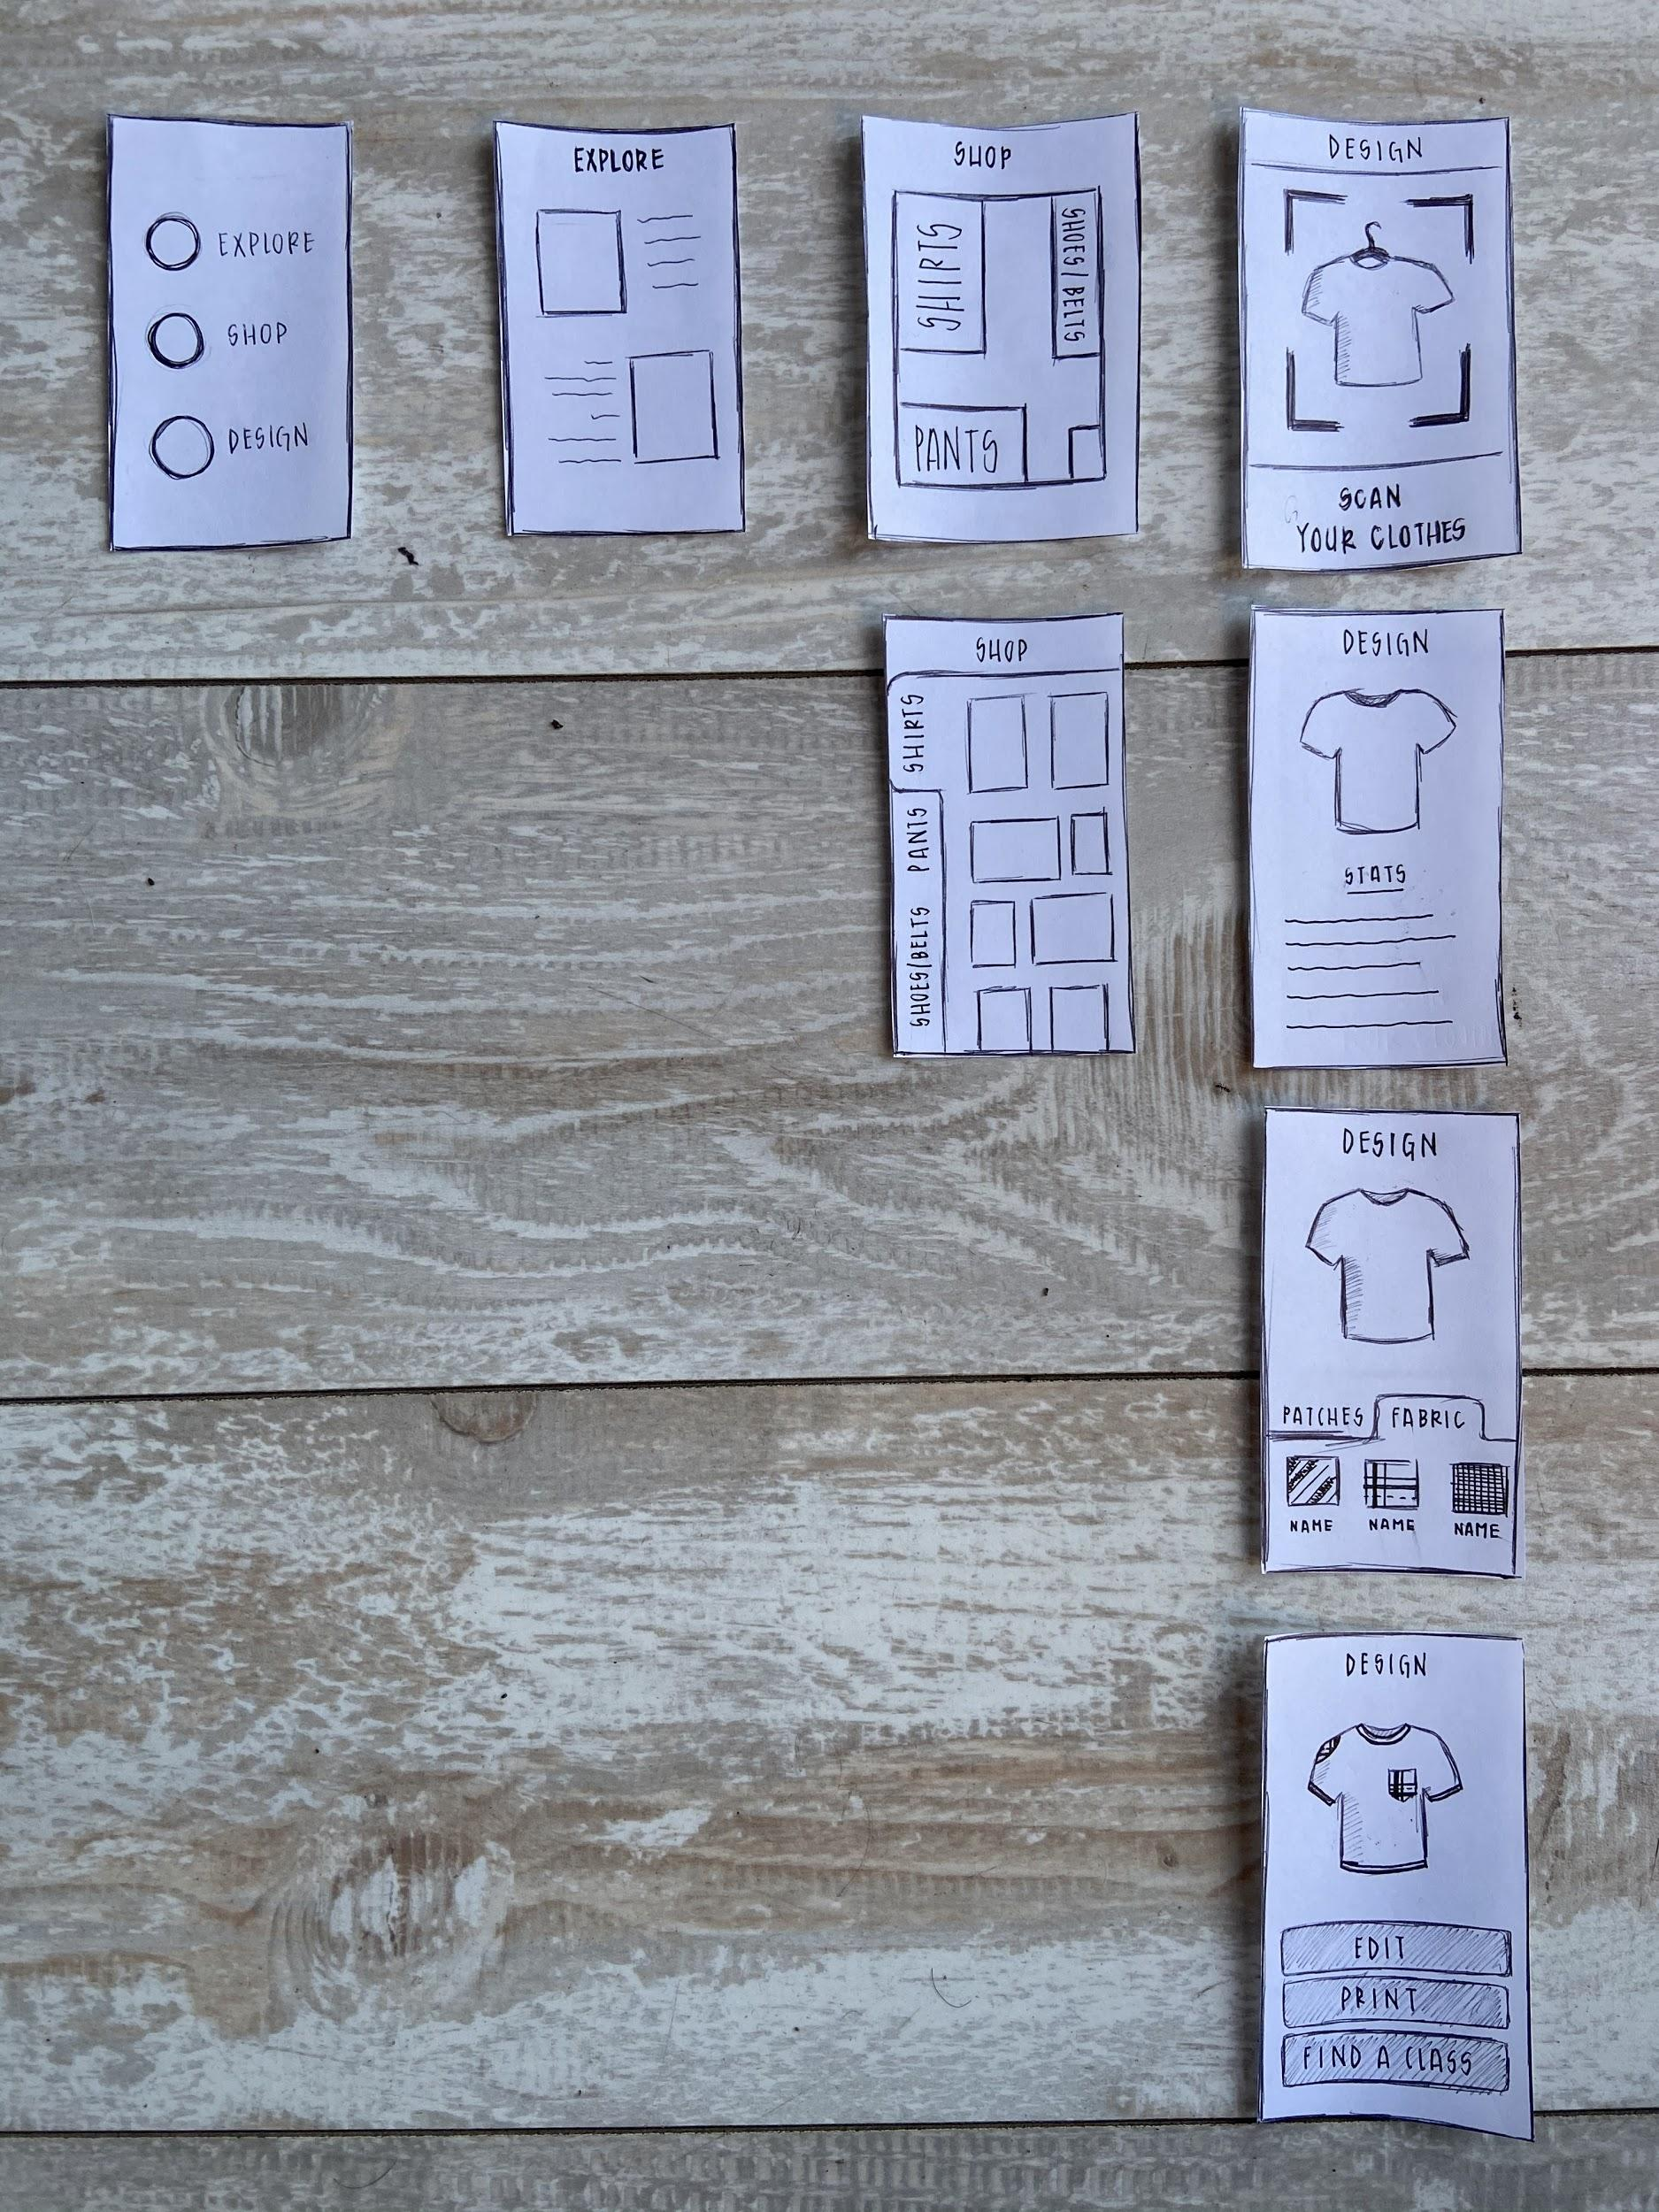 EXPLORE
SHOP
DESIGN
EXPLORE
SHOP
SHIRTS
SHOES/BELTS
PANTS
DESIGN
SCAN
YOUR CLOTHES
SHOP
SHIRTS
PANTS
SHOES/BELTS
DESIGN
STATS
DESIGN
PATCHES FABRIC
NAME NAME NAME
DESIGN
EDIT
PRINT
FIND A CLASS